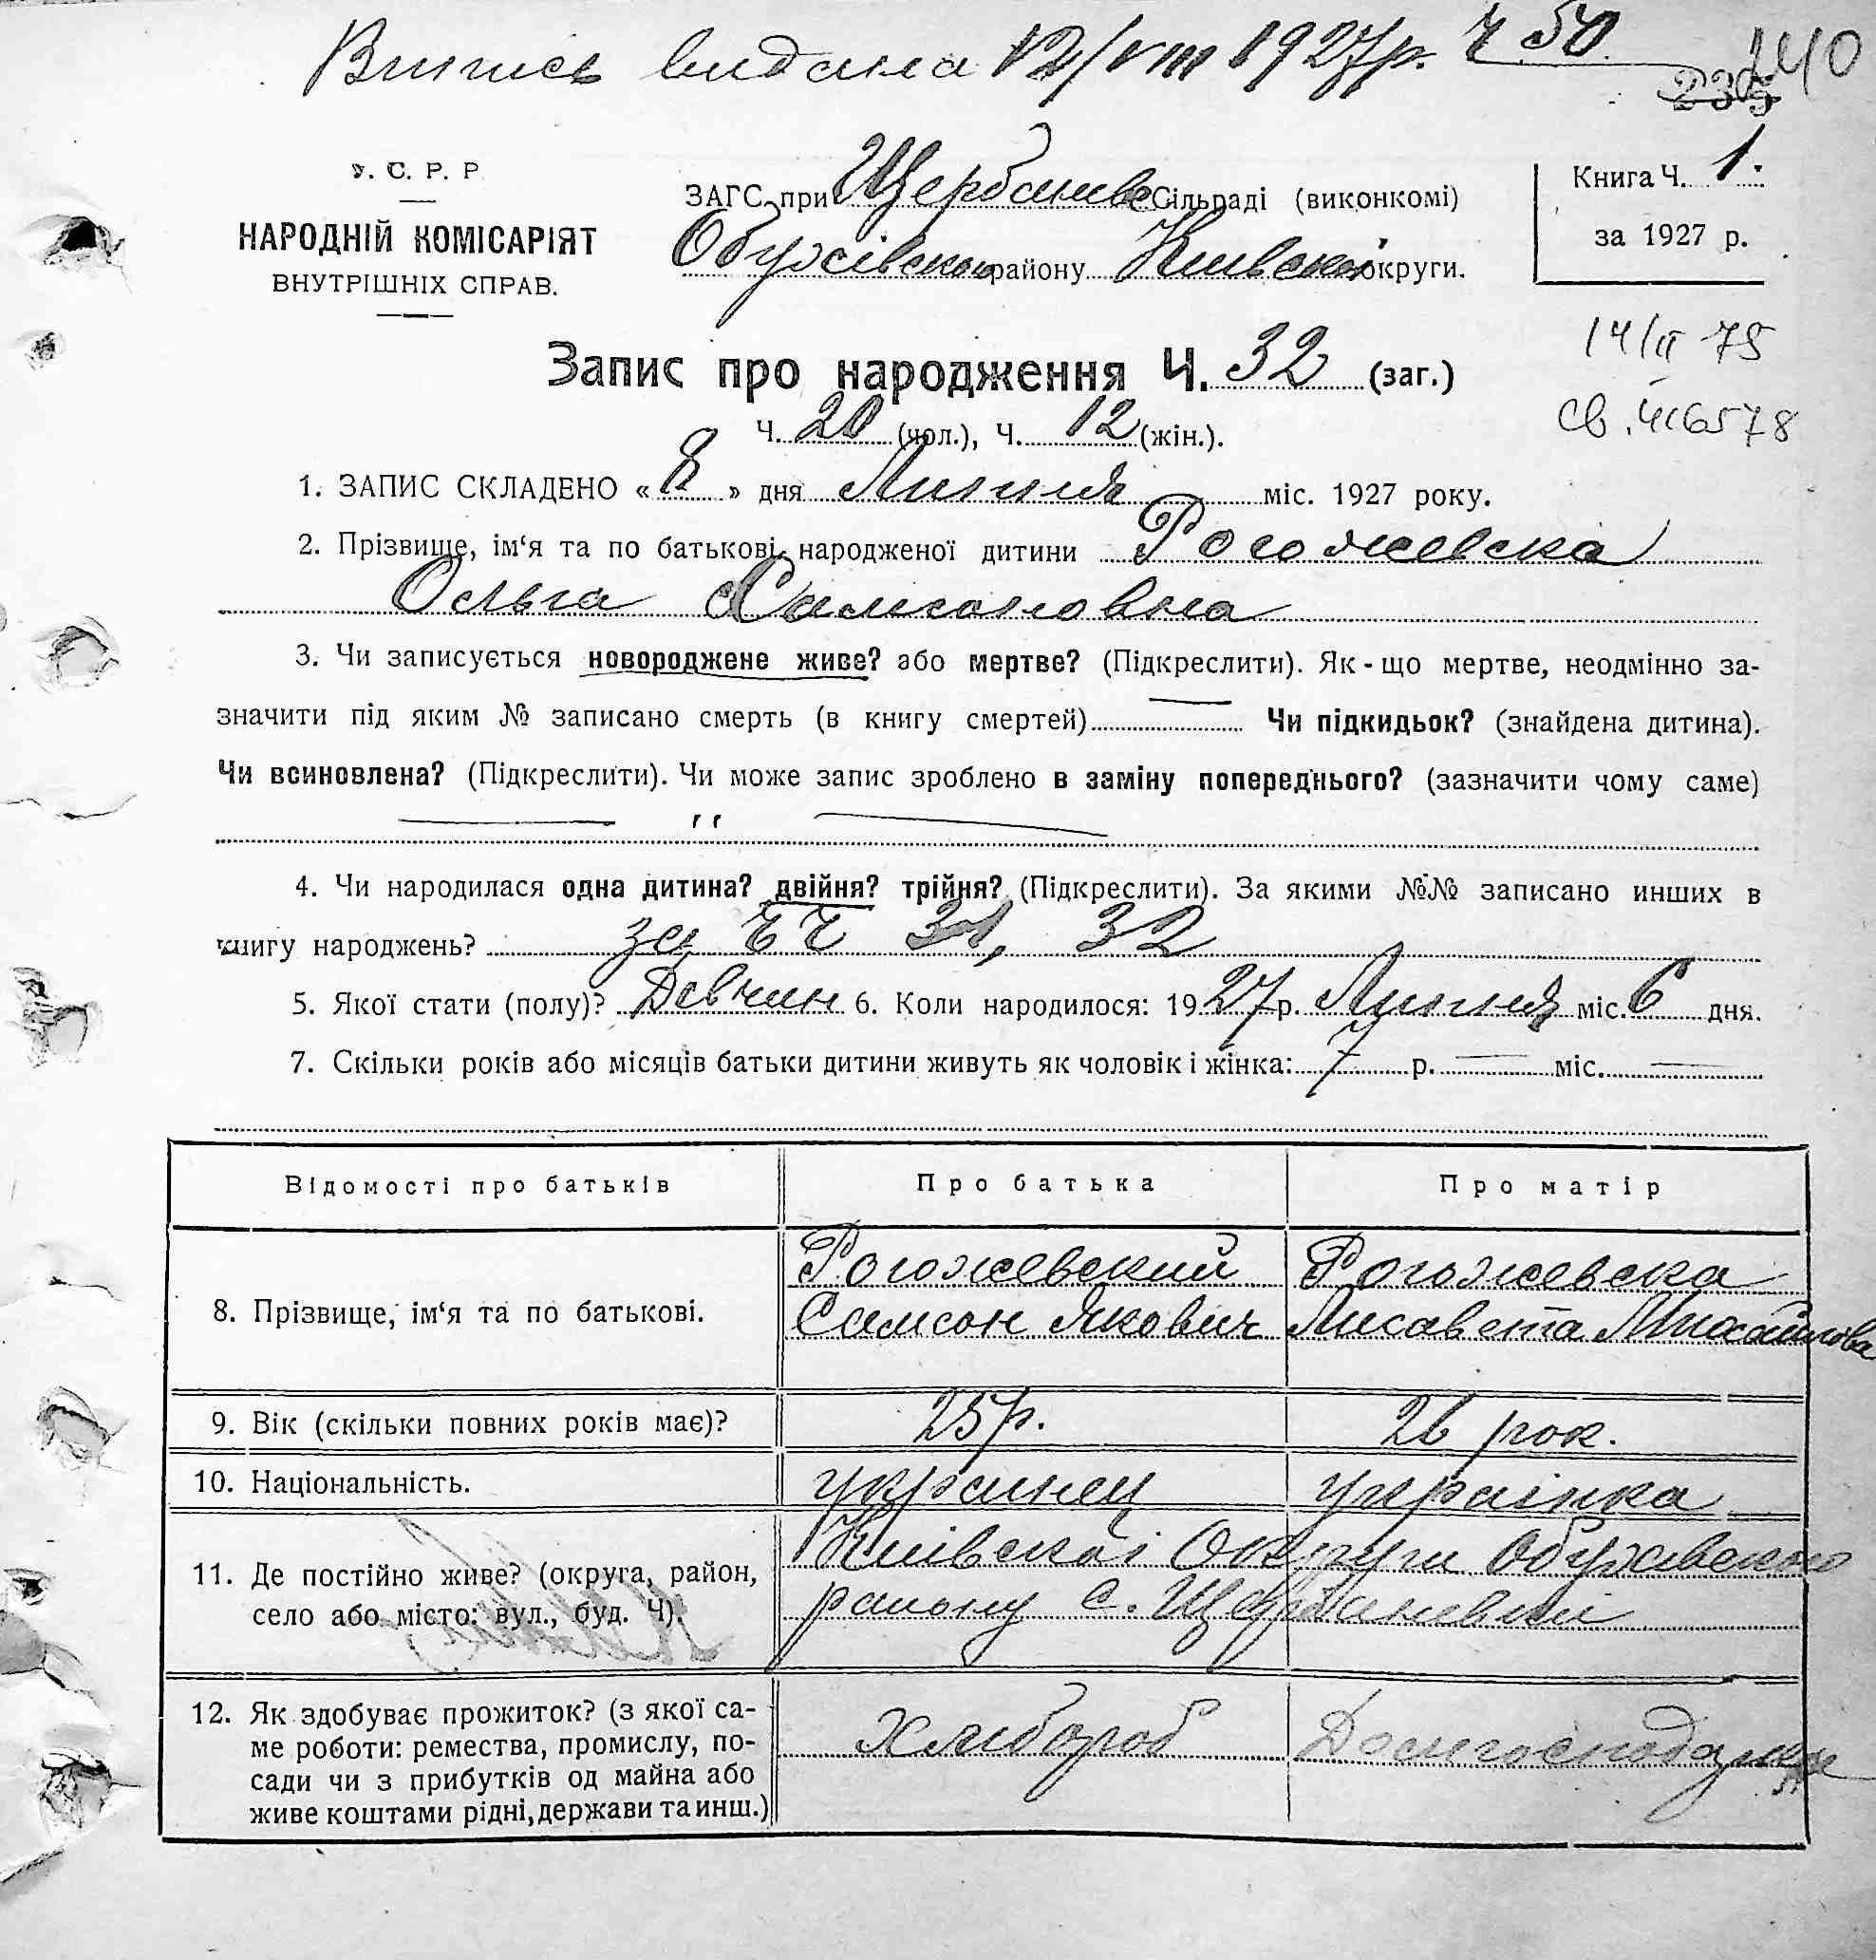 Випись видана 12/VIII 1927р. Ч 50.
240
235
У. С. Р. Р
НАРОДНІЙ КОМІСАРІЯТ
ВНУТРІШНІХ СПРАВ.
ЗАГС при Щербанивс Сільраді (виконкомі)
Обухівско району Киівскоі округи.
Книга Ч. 1.
за 1927 р.
14/II 75
Запис про народження Ч. 32 (заг.)
св. 416578
Ч. 20 (чол.), Ч. 12 (жін.).
1. ЗАПИС СКЛАДЕНО « 8 » дня Липня міс. 1927 року.
2. Прізвище, ім‘я та по батькові народженої дитини Рогожевска
Ольга Самсоновна
3. Чи записується новороджене живе? або мертве? (Підкреслити). Як-що мертве, неодмінно за-
значити під яким № записано смерть (в книгу смертей) — Чи підкидьок? (знайдена дитина).
Чи всиновлена? (Підкреслити). Чи може запис зроблено в заміну попереднього? (зазначити чому саме)
— '' —
4. Чи народилася одна дитина? двійня? трійня? (Підкреслити). За якими №№ записано инших в
книгу народжень? за ЧЧ 31, 32
5. Якої стати (полу)? Девчин 6. Коли народилося: 1927 р. Липня міс. 6 дня.
7. Скільки років або місяців батьки дитини живуть як чоловік і жінка: 7 р. — міс. —
Відомості про батьків Про батька Про матір
8. Прізвище, ім‘я та по батькові.
Рогожевский
Самсон Якович
Рогожевска
Лисавета Михайлова
9. Вік (скільки повних років має)? 25 р. 26 рок.
10. Національність. украинец украінка
11. Де постійно живе? (округа, район,
село або місто: вул., буд. Ч).
Киівскоі Округи Обухівского
району с. Щербанивки
12. Як здобуває прожиток? (з якої са-
ме роботи: ремества, промислу, по-
сади чи з прибутків од майна або
живе коштами рідні, держави та инш.)
Хлибороб
Домгосподарка